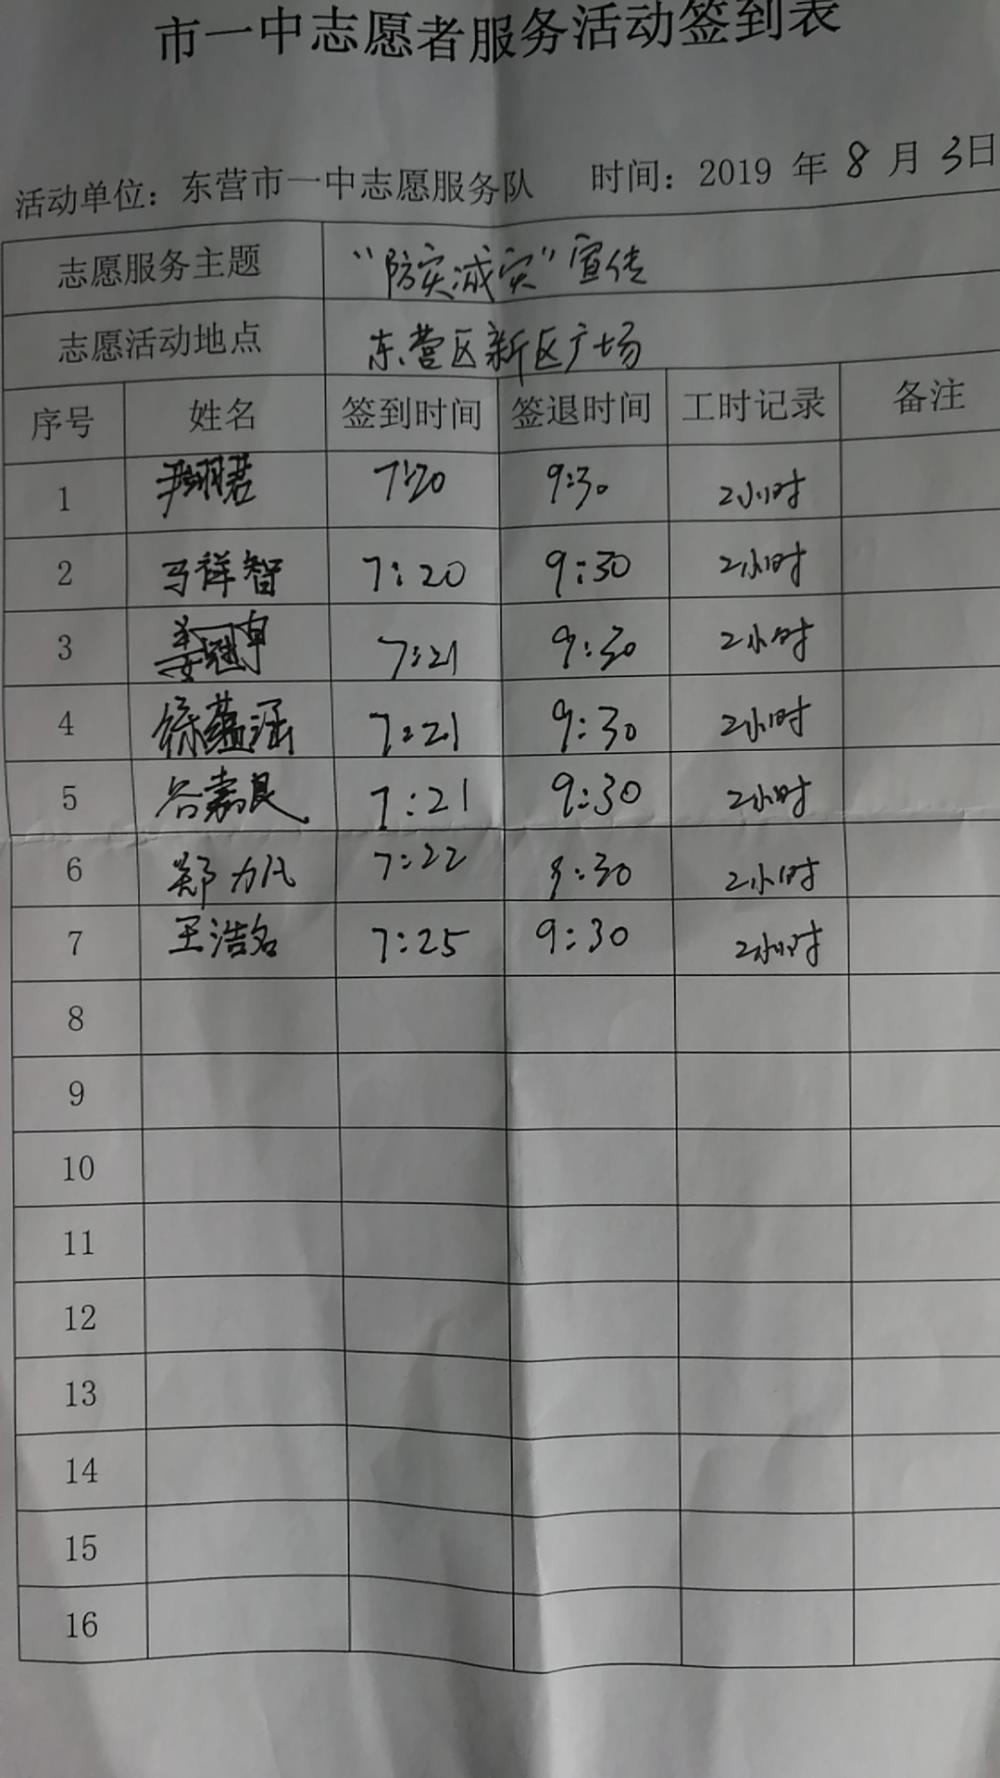 市一中志愿者服务活动签到表
活动单位：东营市一中志愿服务队 时间：2019 年 8 月 3日
志愿服务主题 “防灾减灾”宣传
志愿活动地点 东营区新区广场
序号 姓名 签到时间 签退时间 工时记录 备注
1 7:20 9:30 2小时
2 马祥智 7:20 9:30 2小时
3 姜冠卓 7:21 9:30 2小时
4 徐蕴涵 7:21 9:30 2小时
5 谷嘉良 7:21 9:30 2小时
6 郑力凡 7:22 9:30 2小时
7 王浩名 7:25 9:30 2小时
8
9
10
11
12
13
14
15
16